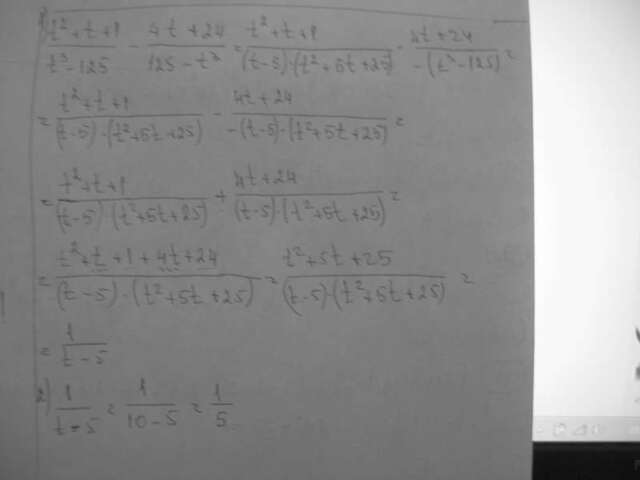 1) (t²+t+1)/(t³-125) - (4t+24)/(125-t³) = (t²+t+1)/((t-5)·(t²+5t+25)) - (4t+24)/(-(t³-125)) =
= (t²+t+1)/((t-5)·(t²+5t+25)) - (4t+24)/(-(t-5)·(t²+5t+25)) =
= (t²+t+1)/((t-5)·(t²+5t+25)) + (4t+24)/((t-5)·(t²+5t+25)) =
= (t²+t+1+4t+24)/((t-5)·(t²+5t+25)) = (t²+5t+25)/((t-5)·(t²+5t+25)) =
= 1/(t-5)
2) 1/(t-5) = 1/(10-5) = 1/5